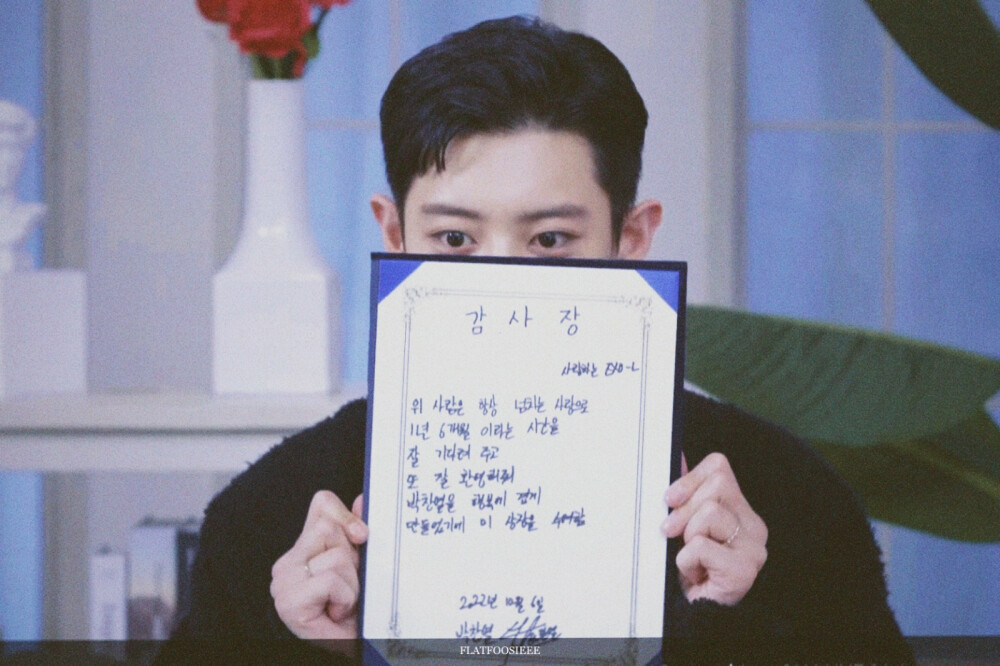 감 사 장
사랑하는 EXO-L
위 사람은 항상 넘치는 사랑으로
1년 6개월 이라는 시간을
잘 기다려 주고
또 잘 환영해줘
박찬열을 행복에 겹게
만들었기에 이 상장을 수여함
2022년 10월 6일
박찬열
FLATFOOSIEEE